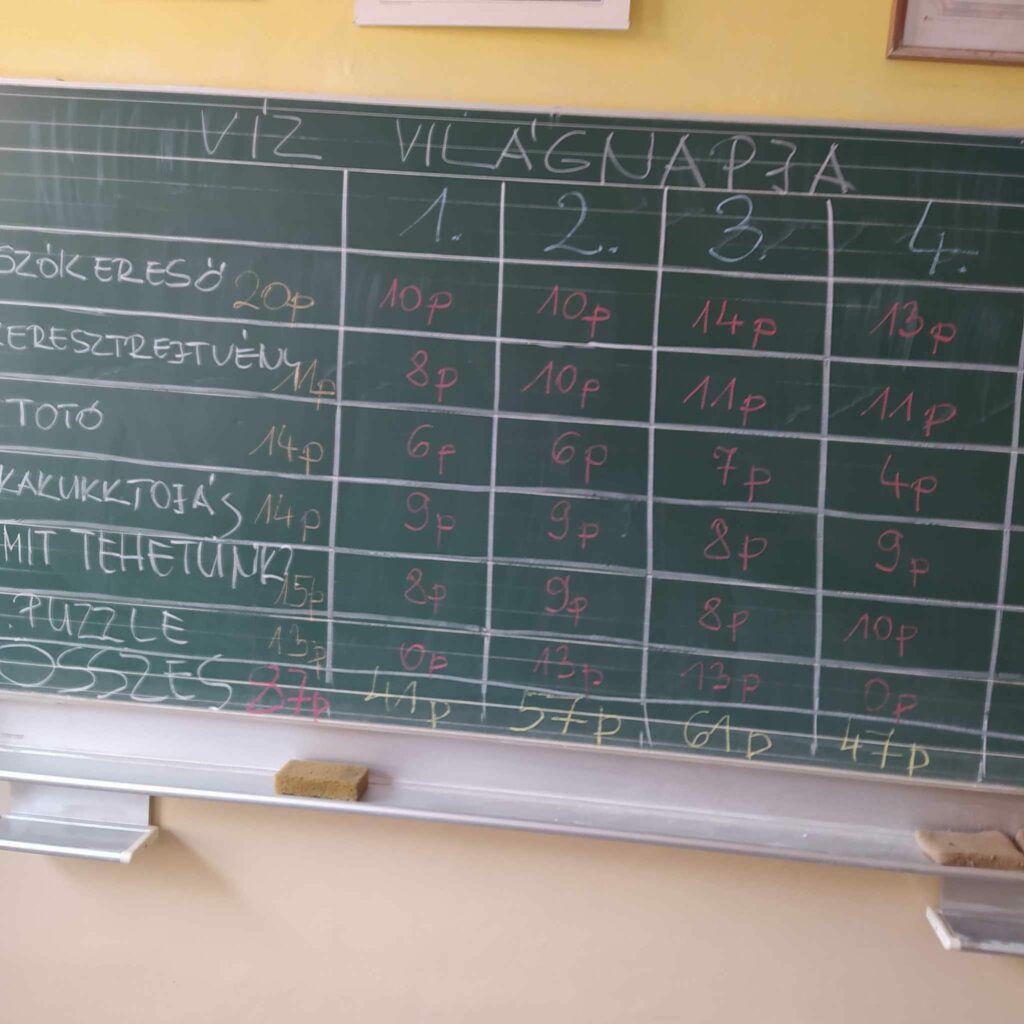 VÍZ VILÁGNAPJA
1. 2. 3. 4.
SZÓKERESŐ 20p 10p 10p 14p 13p
KERESZTREJTVÉNY 11p 8p 10p 11p 11p
TOTÓ 14p 6p 6p 7p 4p
KAKUKKTOJÁS 14p 9p 9p 8p 9p
MIT TEHETÜNK 15p 8p 9p 8p 10p
PUZZLE 13p 0p 13p 13p 0p
ÖSSZES 87p 41p 57p 61p 47p